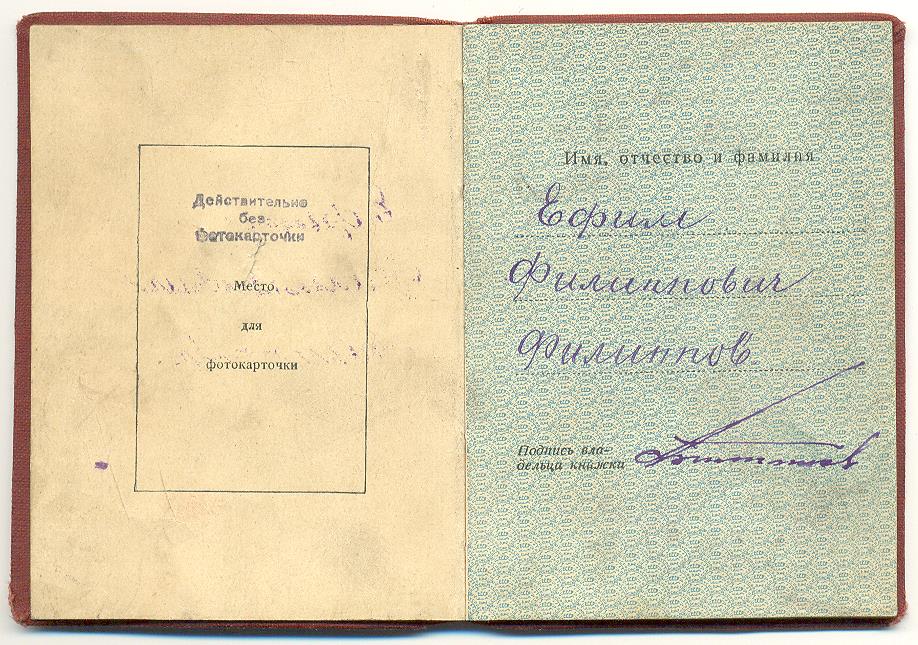 Действительно
без
фотокарточки
Место
для
фотокарточки
Имя, отчество и фамилия
Ефим
Филиппович
Филиппов
Подпись вла-
дельца книжки